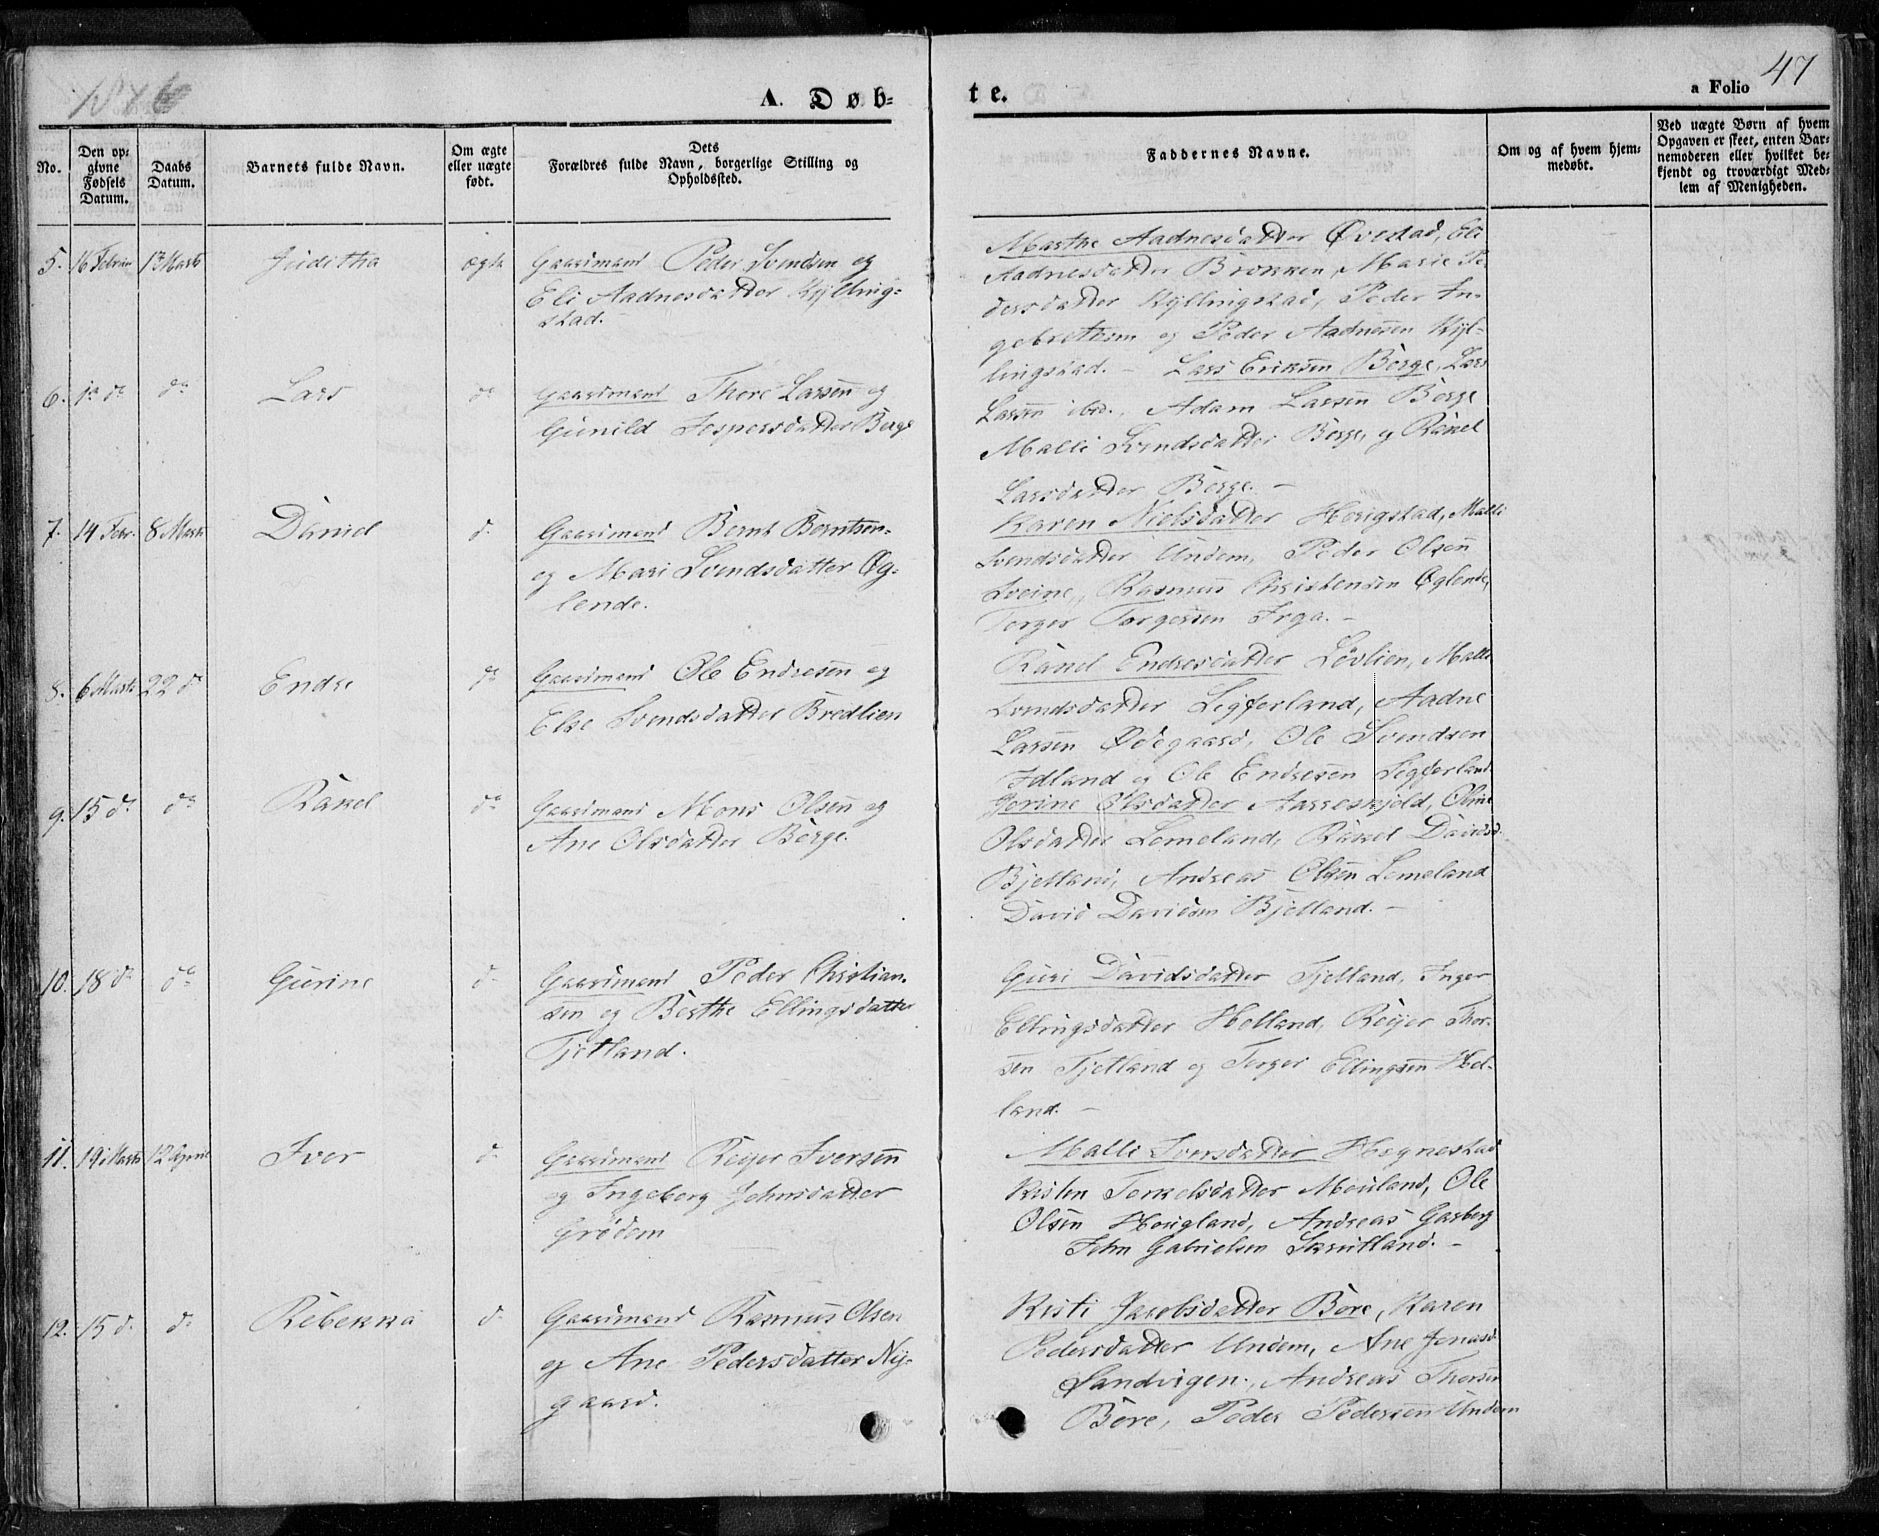 1846
A. Døb-
te.
a Folio 47
No.
Den op-
givne
Fødsels
Datum.
Daabs
Datum.
Barnets fulde Navn.
Om ægte
eller uægte
født.
Dets
Forældres fulde Navn, borgerlige Stilling og
Opholdssted.
Faddernes Navne.
Om og af hvem hjem-
medøbt.
Ved uægte Børn af hvem
Opgaven er skeet, enten Bar-
nemoderen eller hvilket be-
kjendt og troværdigt Med-
lem af Menigheden.
5. 16 Februar 13 Marts Juditha ægte Gaardmand Peder Svendsen og
Eli Aadnesdatter Kylling-
stad.
Marthe Aadnesdatter Ovestad, Eli
Aadnesdatter Brekken, Marie Pe-
dersdatter Kyllingstad, Peder In-
gebretsen og Peder Aadnesen Kyl-
lingstad. –
6. 1ste do do Lars do Gaardmand Thore Larsen og
Gunild Jespersdatter Berge
Lars Eriksen Berge, Lars
Larsen ibid., Adam Larsen Berge
Malli Svendsdatter Berge, og Rakel
Larsdatter Berge. –
7. 14 Febr. 8 Marts Daniel do Gaardmand Bernt Berntsen
og Mari Svendsdatter Øg-
lende.
Karen Nielsdatter Hougstad, Malli
Svendsdatter Undem, Peder Olsen
Sveine, Rasmus Christensen Øglende,
Torger Torgersen Frga. –
8. 6 Marts 22 do Endre do Gaardmand Ole Endresen og
Else Svendsdatter Bredlien
Rakel Endresdatter Løvlien, Malli
Svendsdatter Ligferland, Aadne
Larsen Ødegaard, Ole Svendsen
Idland og Ole Endresen Ligferland
9. 15 do do Rakel do Gaardmand Mons Olsen og
Ane Olsdatter Berge.
Jorine Olsdatter Aarreskjold, Oline
Olsdatter Lomeland, Rakel Davidsd.
Bjelland, Andreas Olsen Lomeland
David Davidsen Bjelland. –
10. 18 do do Gurine do Gaardmand Peder Christian-
sen og Berthe Ellingsdatter
Tjetland.
Guri Davidsdatter Tjelland, Inger
Ellingsdatter Helland, Reyer Thor-
sen Tjetland og Torger Ellingsen Hel-
land. –
11. 19 Marts 12 April Iver do Gaardmand Reyer Iversen
og Ingeborg Johnsdatter
Grødem
Malli Iversdatter Hognestad
Kisten Terkelsdatter Mouland, Ole
Olsen Hougland, Andreas Garberg
John Gabrielsen Skrutland. –
12. 15 do do Rebekka do Gaardmand Rasmus Olsen
og Ane Pedersdatter Ny-
gaard.
Kisti Jacobsdatter Bore, Karen
Pedersdatter Undem, Ane Jonasd.
Sandvigen, Andreas Thorsen
Bore, Peder Pedersen Undem